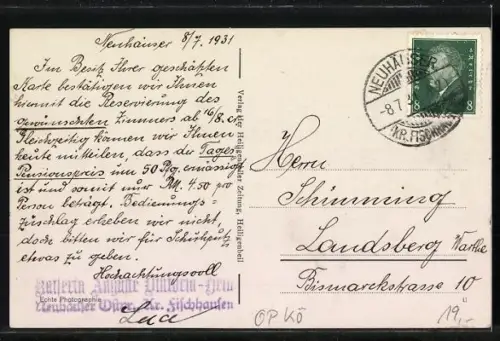 Neuhäuser 8/7. 1931
Im Besitz Ihrer geschätzten
Karte bestätigen wir Ihnen
hiermit die Reservierung des
gewünschten Zimmers ab 16/8. cr.
Gleichzeitig können wir Ihnen
heute mitteilen, dass der Tages-
Pensionspreis um 50 Pfg. ermässigt
ist und somit nur RM. 4.50 pro
Person beträgt. Bedienungs-
zuschlag erheben wir nicht,
doch bitten wir für Schuhputz
etwas zu geben.
Hochachtungsvoll
Kaiserin Auguste Viktoria-Heim
Neuhäuser Ostpr., Kr. Fischhausen
Echte Photographie
Verlag der Heiligenbeiler Zeitung, Heiligenbeil
NEUHÄUSER
-8.7.
(KR. FISCHHAUSEN)
8 8
Herrn
Schimming
Landsberg Warthe
Bismarckstasse 10
OPKÖ
19,-